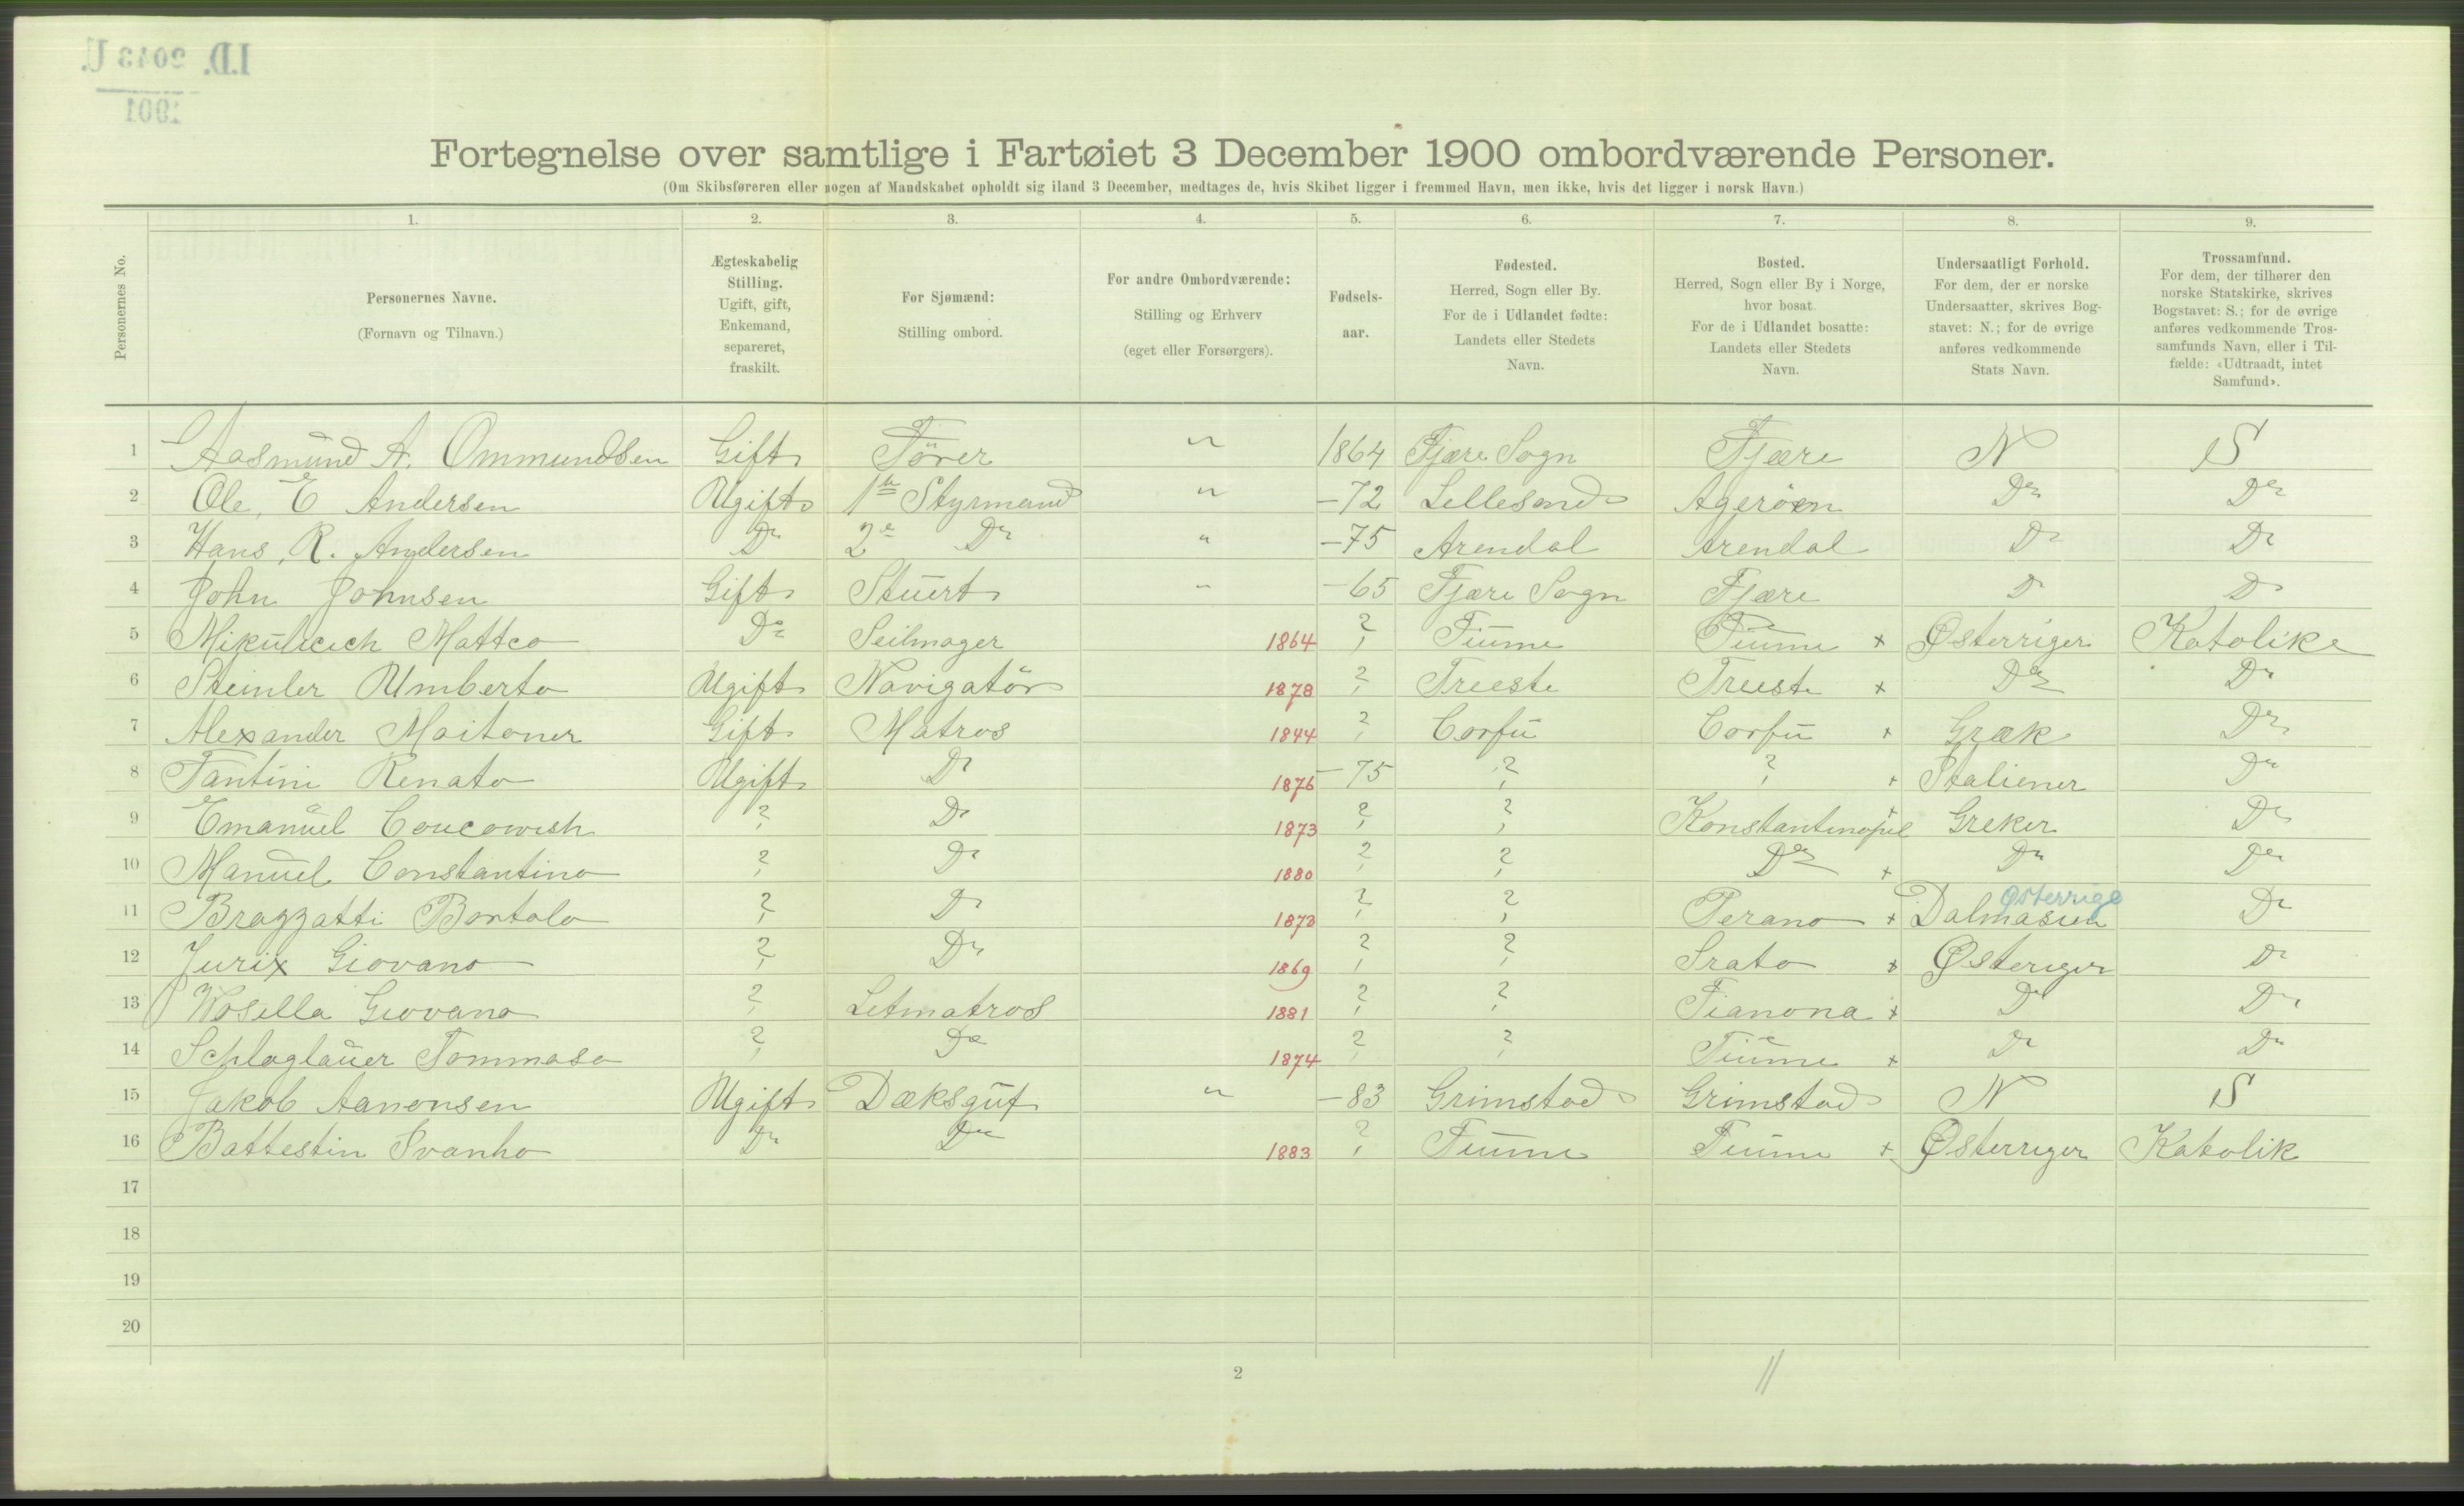 I.D. 2043 U.
1901
Fortegnelse over samtlige i Fartøiet 3 December 1900 ombordværende Personer.
(Om Skibsføreren eller nogen af Mandskabet opholdt sig iland 3 December, medtages de, hvis Skibet ligger i fremmed Havn, men ikke, hvis det ligger i norsk Havn.)
1. 2. 3. 4. 5. 6. 7. 8. 9.
Personernes No.
Personernes Navne.
(Fornavn og Tilnavn.)
Ægteskabelig
Stilling.
Ugift, gift,
Enkemand,
separeret,
fraskilt.
For Sjømænd:
Stilling ombord.
For andre Ombordværende:
Stilling og Erhverv
(eget eller Forsørgers).
Fødsels-
aar.
Fødested.
Herred, Sogn eller By.
For de i Udlandet fødte:
Landets eller Stedets
Navn.
Bosted.
Herred, Sogn eller By i Norge,
hvor bosat.
For de i Udlandet bosatte:
Landets eller Stedets
Navn.
Undersaatligt Forhold.
For dem, der er norske
Undersaatter, skrives Bog-
stavet: N.; for de øvrige
anføres vedkommende
Stats Navn.
Trossamfund.
For dem, der tilhører den
norske Statskirke, skrives
Bogstavet: S.; for de øvrige
anføres vedkommende Tros-
samfunds Navn, eller i Til-
fælde: «Udtraadt, intet
Samfund».
1 Aasmund A. Ommundsen Gift Förer " 1864 Fjære Sogn Fjære N S
2 Ole E Andersen Ugift 1ste Styrmand " -72 Lillesand Agerøen Do Do
3 Hans R. Andersen Do 2e Do " -75 Arendal Arendal Do Do
4 John Johnsen Gift Stuert " -65 Fjære Sogn Fjære Do Do
5 Mikulicich Matteo Do Seilmager 1864 ? Fiume Fiume x Østerriger Katolike
6 Steinler Umberto Ugift Navigatör 1878 ? Trieste Trieste x Do Do
7 Alexander Maitoner Gift Matros 1844 ? Corfu Corfu x Græk Do
8 Tantini Renato Ugift Do 1876 -75 ? ? x Italiener Do
9 Emanuel Coucowich ? Do 1873 ? ? Konstantinopel x Greker Do
10 Manuel Constantino ? Do 1880 ? ? Do x Do Do
11 Brazzatti Bortolo ? Do 1873 ? ? Perano x Dalmasien Østerrige Do
12 Jurix Giovano ? Do 1869 ? ? Srato x Østeriger Do
13 Vosilla Giovano ? Letmatros 1881 ? ? Fianona x Do Do
14 Schlaglauer Tommaso ? Do 1874 ? ? Fiume x Do Do
15 Jakob Aanonsen Ugift Dæksgut " -83 Grimstad Grimstad N S
16 Battestin Ivanho Do Do 1883 ? Fiume Fiume x Østerriger Katolik
17
18
19
20
2
11